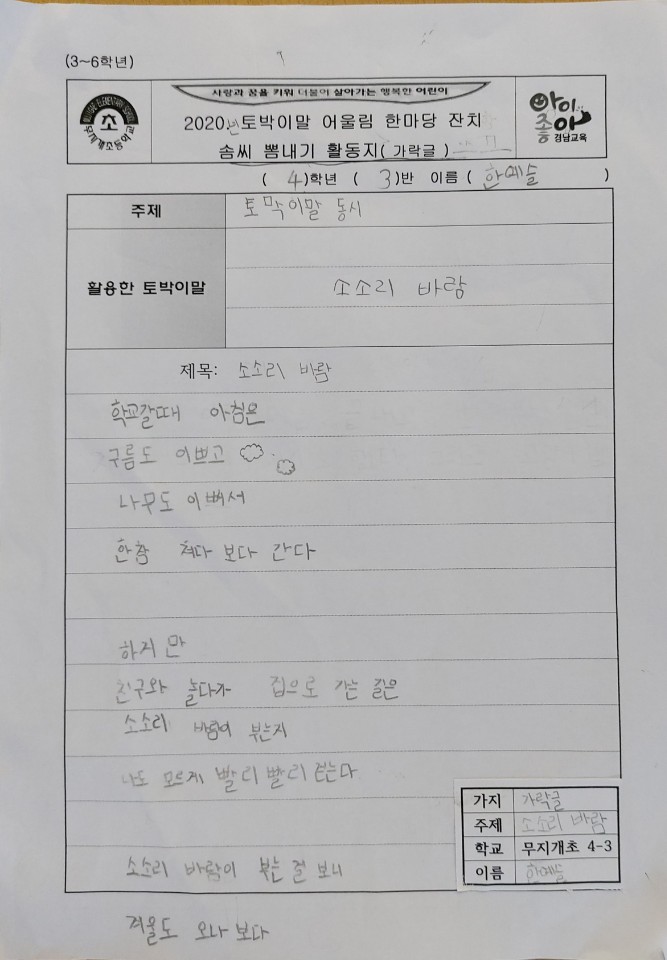 (3~6학년)
사랑과 꿈을 키워 더불어 살아가는 행복한 어린이
초
무지개초등학교
2020년 토박이말 어울림 한마당 잔치
솜씨 뽐내기 활동지( 가락글 )
아이좋아
경남교육
( 4 )학년 ( 3 )반 이름 ( 한예슬 )
주제 토박이말 동시
활용한 토박이말 소소리 바람
제목: 소소리 바람
학교갈때 아침은
구름도 이쁘고
나무도 이뻐서
한참 쳐다 보다 간다
하지만
친구와 놀다가 집으로 가는 길은
소소리 바람이 부는지
나도 모르게 빨리 빨리 걷는다
소소리 바람이 부는 걸 보니
겨울도 오나 보다
가지 가락글
주제 소소리 바람
학교 무지개초 4-3
이름 한예슬